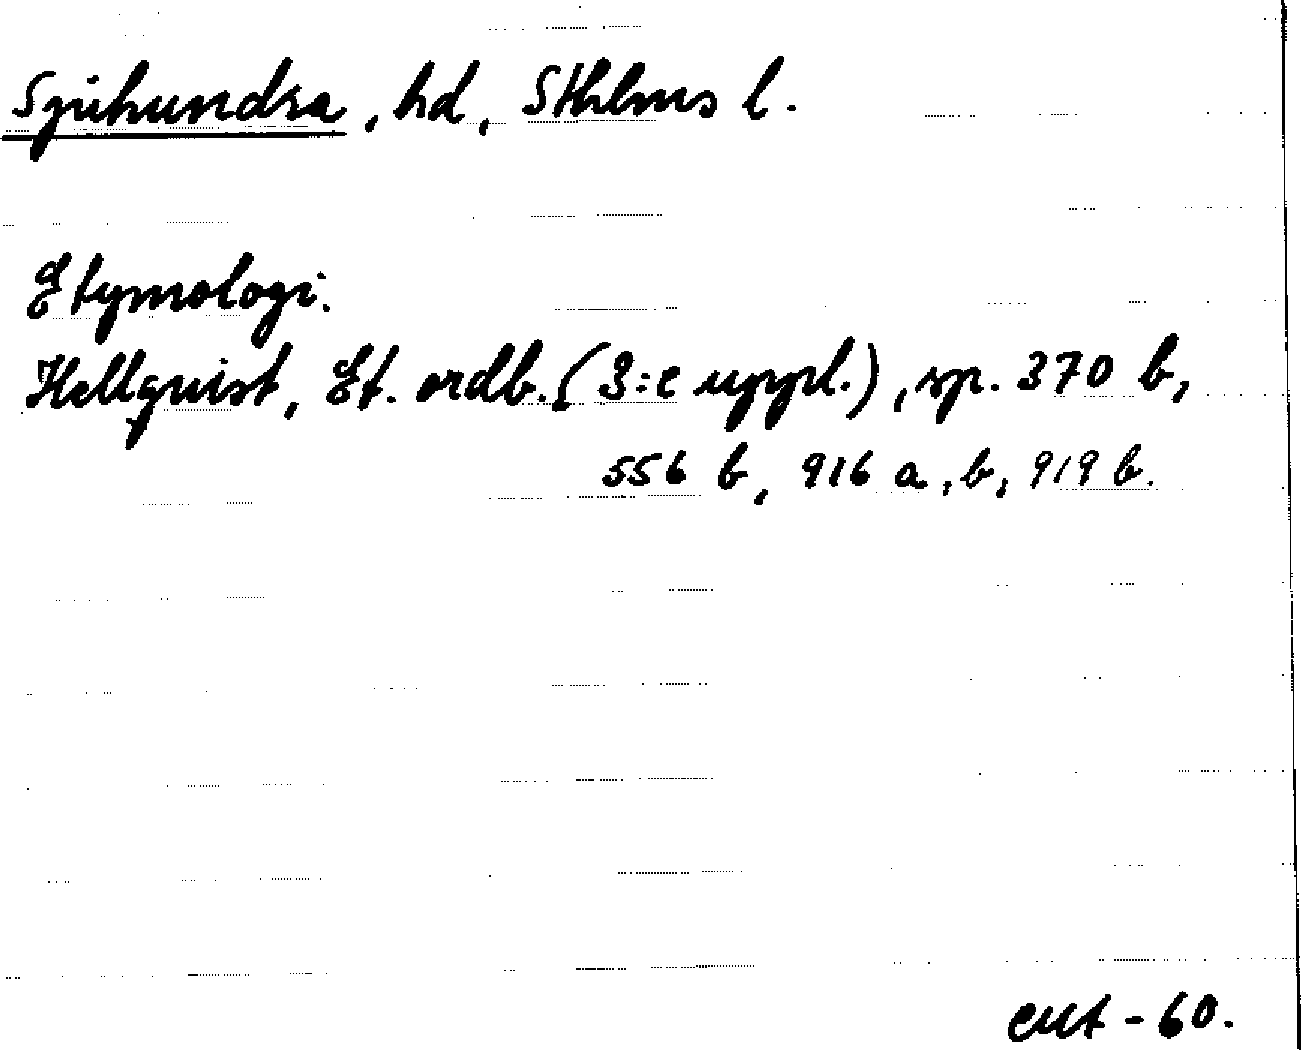 Sjuhundra, hd, Sthlms l.
Etymologi.
Hellquist, Et. ordb. (3:e uppl.), sp. 370 b,
556 b, 916 a, b, 919 b.
cut - 60.